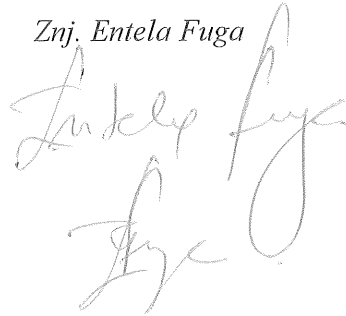 Znj. Entela Fuga
Entela Fuga